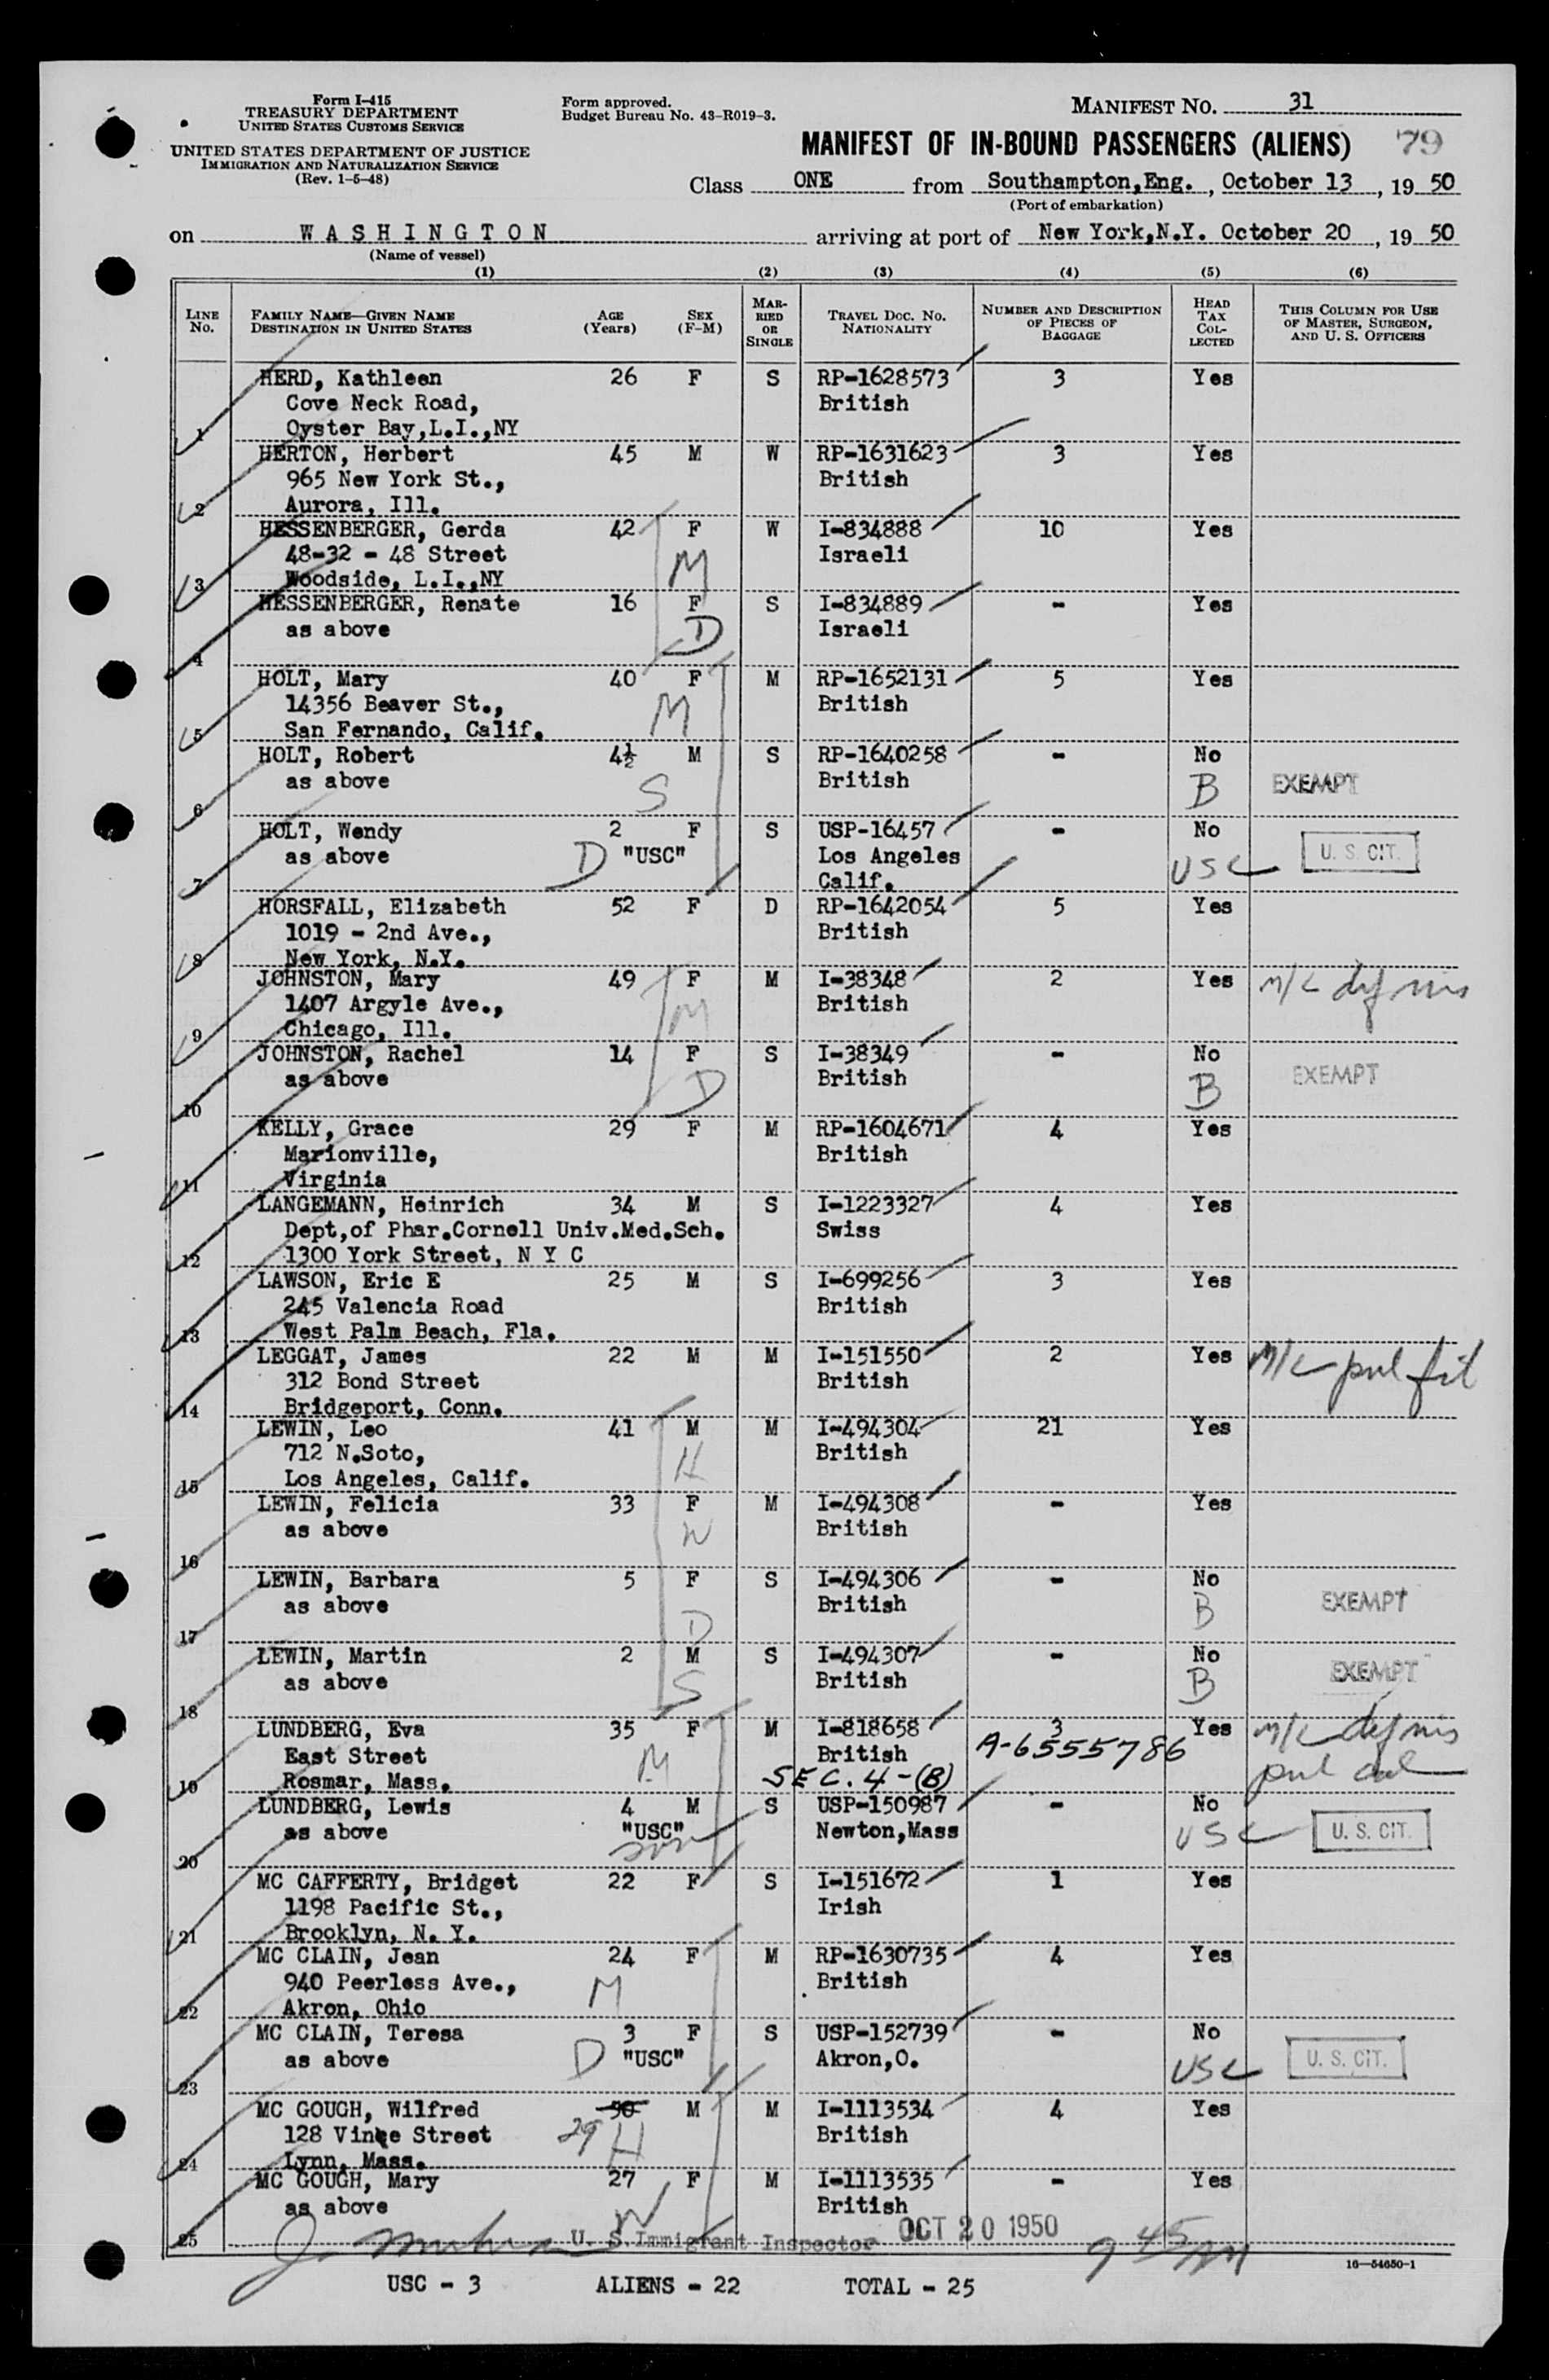 Form I-415
TREASURY DEPARTMENT
UNITED STATES CUSTOMS SERVICE
UNITED STATES DEPARTMENT OF JUSTICE
IMMIGRATION AND NATURALIZATION SERVICE
(Rev. 1-5-48)
Form approved.
Budget Bureau No. 43-R019-3.
MANIFEST NO. 31
MANIFEST OF IN-BOUND PASSENGERS (ALIENS) 79
Class ONE from Southampton,Eng., October 13, 19 50
(Port of embarkation)
on WASHINGTON arriving at port of New York,N.Y. October 20, 19 50
(Name of vessel)
(1) (2) (3) (4) (5) (6)
LINE No. FAMILY NAME—GIVEN NAME DESTINATION IN UNITED STATES AGE (Years) SEX (F-M) MARRIED OR SINGLE TRAVEL DOC. NO. NATIONALITY NUMBER AND DESCRIPTION OF PIECES OF BAGGAGE HEAD TAX COLLECTED THIS COLUMN FOR USE OF MASTER, SURGEON, AND U. S. OFFICERS
HERD, Kathleen 26 F S RP-1628573 3 Yes
Cove Neck Road, British
1 Oyster Bay,L.I.,NY
HERTON, Herbert 45 M W RP-1631623 3 Yes
965 New York St., British
2 Aurora, Ill.
HESSENBERGER, Gerda 42 F W I-834888 10 Yes
48-32 - 48 Street M Israeli
3 Woodside, L.I.,NY
HESSENBERGER, Renate 16 F S I-834889 - Yes
as above D Israeli
4
HOLT, Mary 40 F M RP-1652131 5 Yes
14356 Beaver St., M British
5 San Fernando, Calif.
HOLT, Robert 4½ M S RP-1640258 - No
as above S British B EXEMPT
6
HOLT, Wendy 2 F S USP-16457 - No
as above D "USC" Los Angeles USC U. S. CIT.
7 Calif.
HORSFALL, Elizabeth 52 F D RP-1642054 5 Yes
1019 - 2nd Ave., British
8 New York, N.Y.
JOHNSTON, Mary 49 F M I-38348 2 Yes m/c def vis
1407 Argyle Ave., M British
9 Chicago, Ill.
JOHNSTON, Rachel 14 F S I-38349 - No
as above D British B EXEMPT
10
KELLY, Grace 29 F M RP-1604671 4 Yes
Marionville, British
11 Virginia
LANGEMANN, Heinrich 34 M S I-1223327 4 Yes
Dept,of Phar.Cornell Univ.Med.Sch. Swiss
12 1300 York Street, N Y C
LAWSON, Eric E 25 M S I-699256 3 Yes
245 Valencia Road British
13 West Palm Beach, Fla.
LEGGAT, James 22 M M I-151550 2 Yes m/c pul fib
312 Bond Street British
14 Bridgeport, Conn.
LEWIN, Leo 41 M M I-494304 21 Yes
712 N.Soto, H British
15 Los Angeles, Calif.
LEWIN, Felicia 33 F M I-494308 - Yes
as above W British
16
LEWIN, Barbara 5 F S I-494306 - No
as above D British B EXEMPT
17
LEWIN, Martin 2 M S I-494307 - No
as above S British B EXEMPT
18
LUNDBERG, Eva 35 F M I-818658 3 Yes m/c def vis
East Street M British A-6555786 pul cal
19 Rosmar, Mass. SEC. 4-(B)
LUNDBERG, Lewis 4 M S USP-150987 - No
as above "USC" Newton,Mass USC U. S. CIT.
20 son
MC CAFFERTY, Bridget 22 F S I-151672 1 Yes
1198 Pacific St., Irish
21 Brooklyn, N. Y.
MC CLAIN, Jean 24 F M RP-1630735 4 Yes
940 Peerless Ave., M British
22 Akron, Ohio
MC CLAIN, Teresa 3 F S USP-152739 - No
as above D "USC" Akron,O. USC U. S. CIT.
23
MC GOUGH, Wilfred 30 M M I-1113534 4 Yes
128 Vine Street 29 H British
24 Lynn, Mass.
MC GOUGH, Mary 27 F M I-1113535 - Yes
as above W British
25 U. S. Immigrant Inspector OCT 20 1950 9 45 AM
16-54650-1
USC - 3 ALIENS - 22 TOTAL - 25